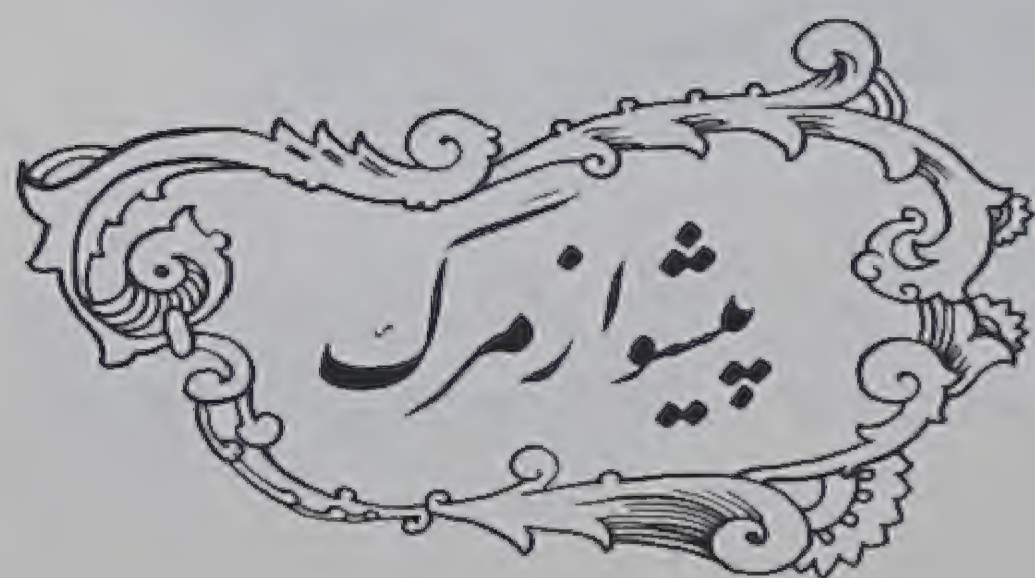 پیشواز مرگ